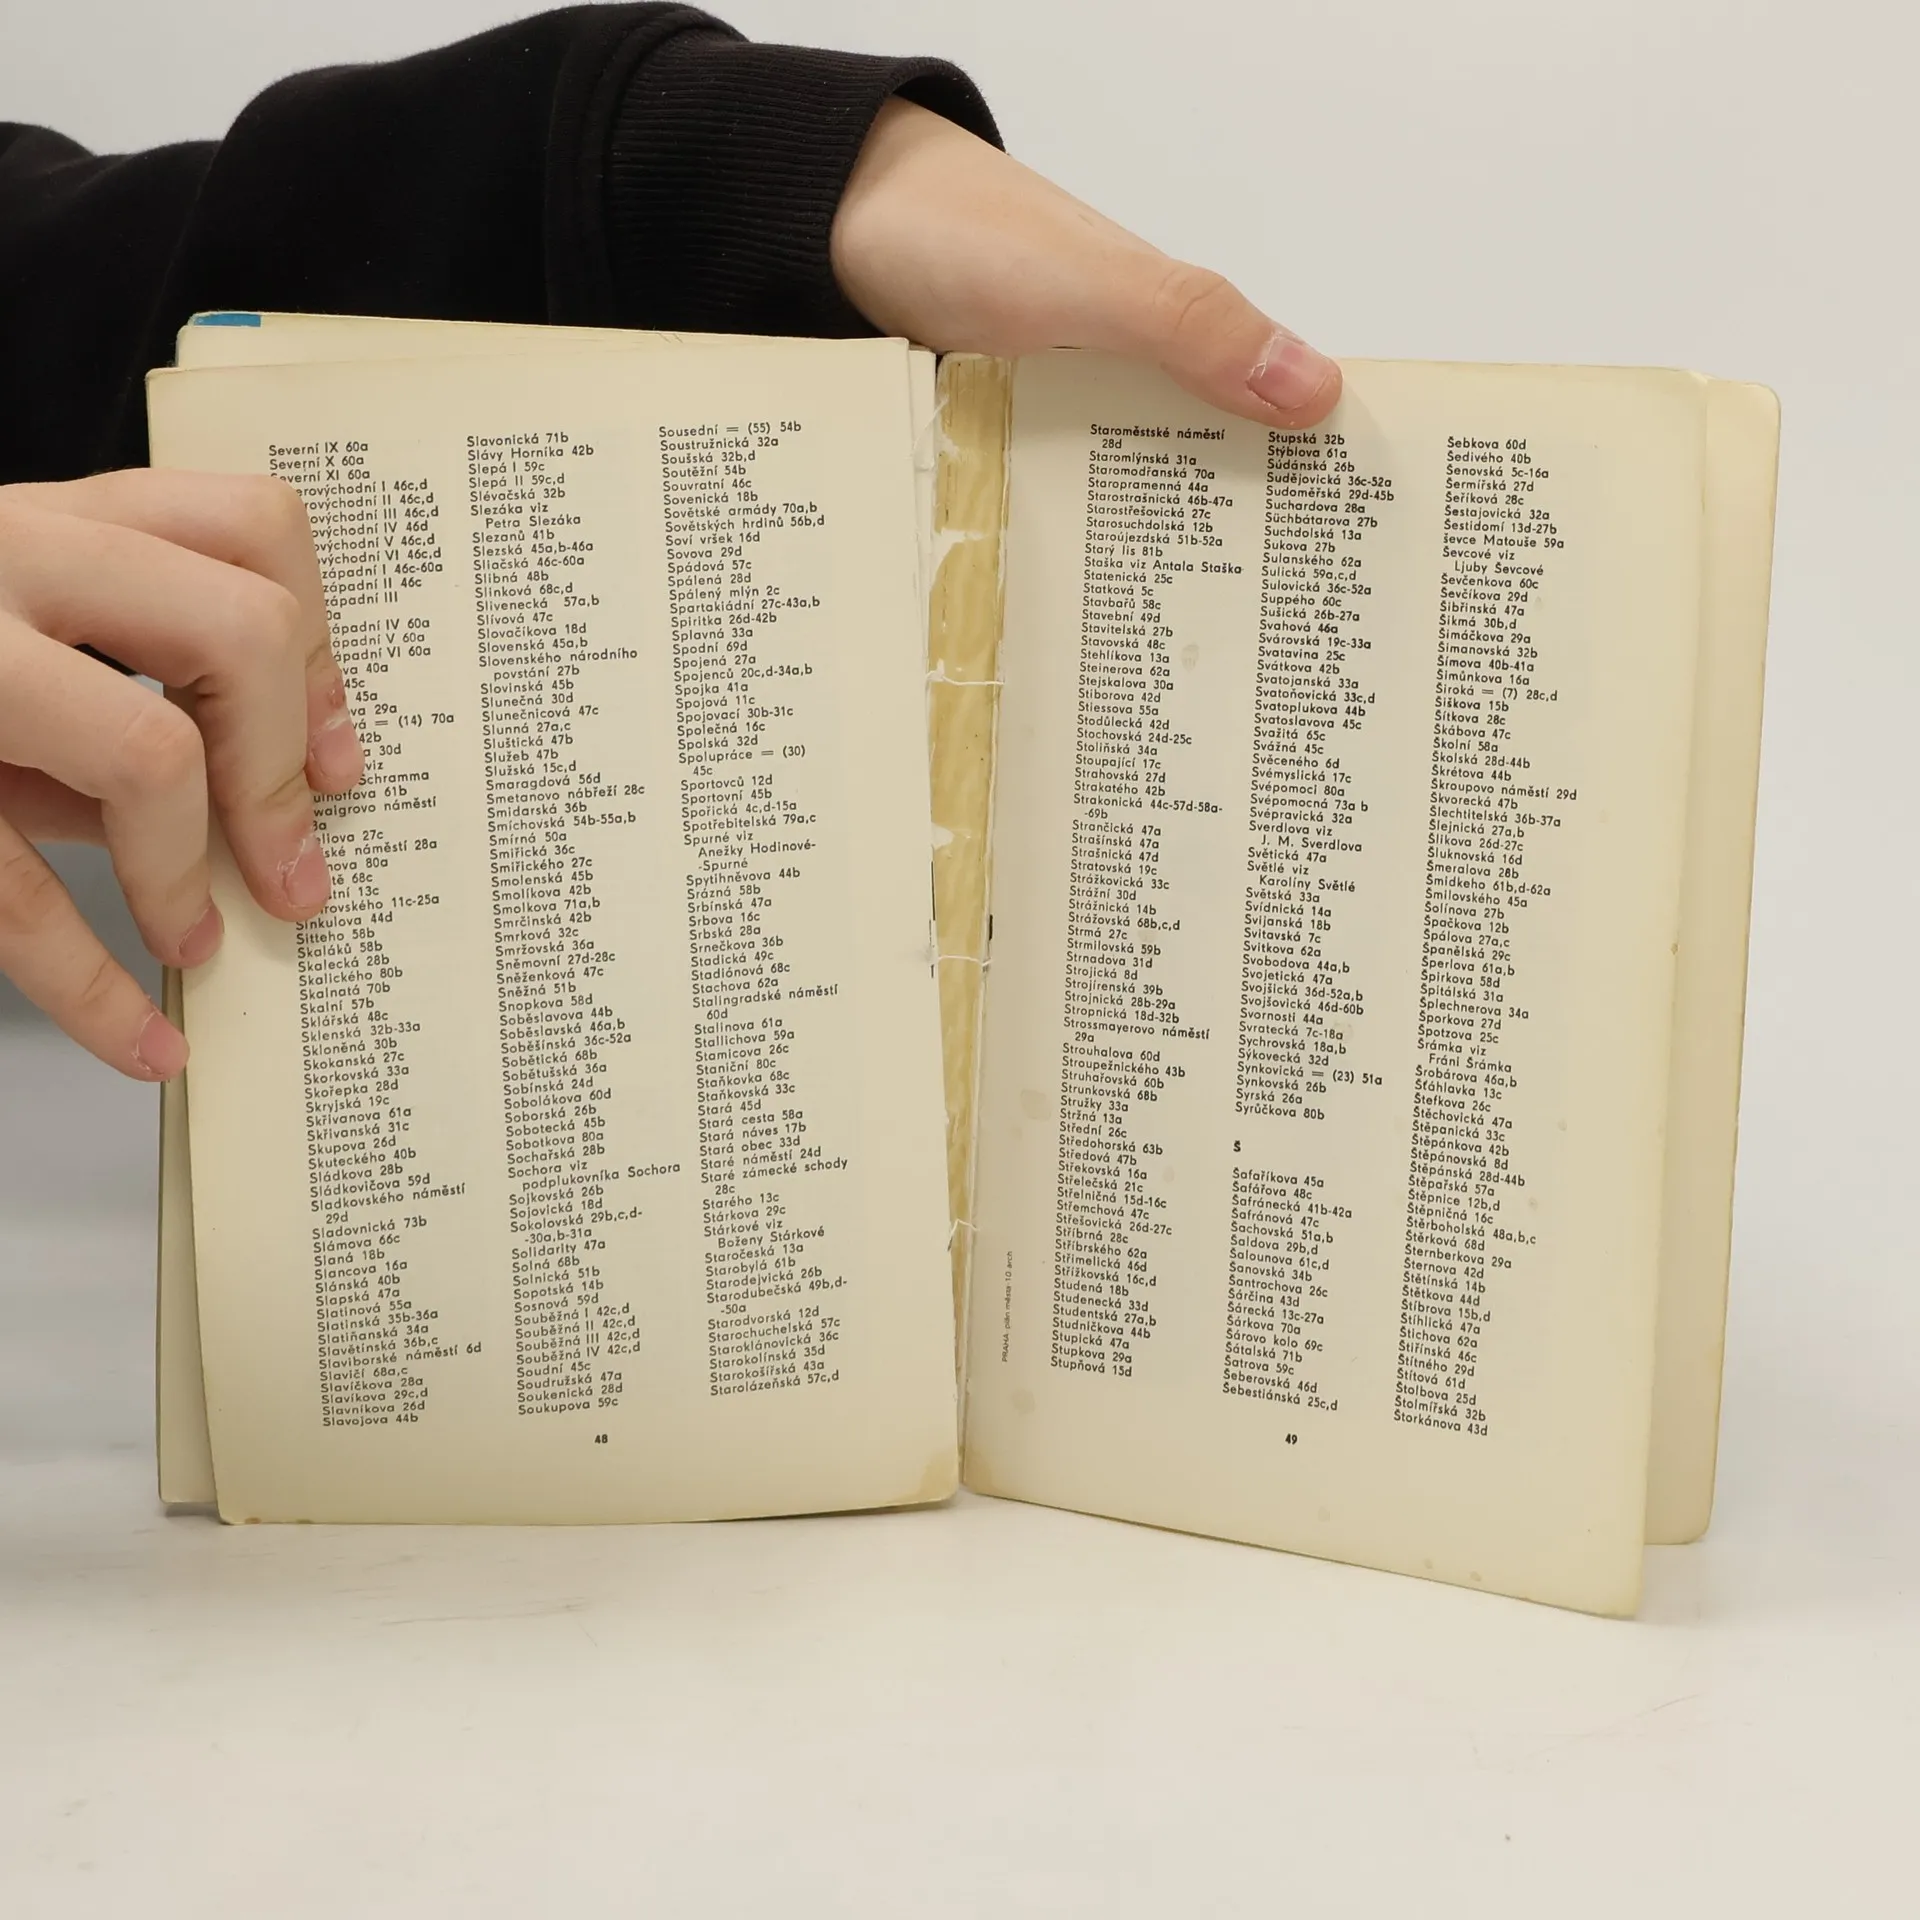 Severní IX 60a
Severní X 60a
Severní XI 60a
I 46c,d
II 46c,d
III 46c,d
IV 46d
V 46c,d
VI 46c,d
I 46c-60a
II 46c
III
IV 60a
V 60a
VI 60a
40a
45c
45a
29a
= (14) 70a
42b
30d
viz
Schramma
61b
náměstí
27c
náměstí 28a
80a
68c
13c
11c-25a
Sinkulova 44d
Sitteho 58b
Skaláků 58b
Skalecká 28b
Skalického 80b
Skalnatá 70b
Skalní 57b
Sklářská 48c
Sklenská 32b-33a
Skloněná 30b
Skokanská 27c
Skorkovská 33a
Skořepka 28d
Skryjská 19c
Skřivanova 61a
Skřivanská 31c
Skupova 26d
Skuteckého 40b
Sládkova 28b
Sládkovičova 59d
Sladkovského náměstí
29d
Sladovnická 73b
Slámova 66c
Slaná 18b
Slancova 16a
Slánská 40b
Slapská 47a
Slatinová 55a
Slatinská 35b-36a
Slatiňanská 34a
Slavětínská 36b,c
Slaviborské náměstí 6d
Slavičí 68a,c
Slavíčkova 28a
Slavíkova 29c,d
Slavníkova 26d
Slavojova 44b
Slavonická 71b
Slávy Horníka 42b
Slepá I 59c
Slepá II 59c,d
Slévačská 32b
Slezáka viz
Petra Slezáka
Slezanů 41b
Slezská 45a,b-46a
Sliačská 46c-60a
Slibná 48b
Slinková 68c,d
Slivenecká 57a,b
Slívová 47c
Slovačíkova 18d
Slovenská 45a,b
Slovenského národního
povstání 27b
Slovinská 45b
Slunečná 30d
Slunečnicová 47c
Slunná 27a,c
Sluštická 47b
Služeb 47b
Služská 15c,d
Smaragdová 56d
Smetanovo nábřeží 28c
Smidarská 36b
Smíchovská 54b-55a,b
Smírná 50a
Smiřická 36c
Smiřického 27c
Smolenská 45b
Smolíkova 42b
Smolkova 71a,b
Smrčinská 42b
Smrková 32c
Smržovská 36a
Sněmovní 27d-28c
Sněženková 47c
Sněžná 51b
Snopkova 58d
Soběslavova 44b
Soběslavská 46a,b
Soběšínská 36c-52a
Sobětická 68b
Sobětušská 36a
Sobínská 24d
Sobolákova 60d
Soborská 26b
Sobotecká 45b
Sobotkova 80a
Sochařská 28b
Sochora viz
podplukovníka Sochora
Sojkovská 26b
Sojovická 18d
Sokolovská 29b,c,d-
-30a,b-31a
Solidarity 47a
Solná 68b
Solnická 51b
Sopotská 14b
Sosnová 59d
Souběžná I 42c,d
Souběžná II 42c,d
Souběžná III 42c,d
Souběžná IV 42c,d
Soudní 45c
Soudružská 47a
Soukenická 28d
Soukupova 59c
Sousední = (55) 54b
Soustružnická 32a
Soušská 32b,d
Soutěžní 54b
Souvratní 46c
Sovenická 18b
Sovětské armády 70a,b
Sovětských hrdinů 56b,d
Soví vršek 16d
Sovova 29d
Spádová 57c
Spálená 28d
Spálený mlýn 2c
Spartakiádní 27c-43a,b
Spiritka 26d-42b
Splavná 33a
Spodní 69d
Spojená 27a
Spojenců 20c,d-34a,b
Spojka 41a
Spojová 11c
Spojovací 30b-31c
Společná 16c
Spolská 32d
Spolupráce = (30)
45c
Sportovců 12d
Sportovní 45b
Spořická 4c,d-15a
Spotřebitelská 79a,c
Spurné viz
Anežky Hodinové-
-Spurné
Spytihněvova 44b
Srázná 58b
Srbínská 47a
Srbova 16c
Srbská 28a
Srnečkova 36b
Stadická 49c
Stadiónová 68c
Stachova 62a
Stalingradské náměstí
60d
Stalinova 61a
Stallichova 59a
Stamicova 26c
Staniční 80c
Staňkovka 68c
Staňkovská 33c
Stará 45d
Stará cesta 58a
Stará náves 17b
Stará obec 33d
Staré náměstí 24d
Staré zámecké schody
28c
Starého 13c
Stárkova 29c
Stárkové viz
Boženy Stárkové
Staročeská 13a
Starobylá 61b
Starodejvická 26b
Starodubečská 49b,d-
-50a
Starodvorská 12d
Starochuchelská 57c
Staroklánovická 36c
Starokolínská 35d
Starokošířská 43a
Starolázeňská 57c,d
48
Staroměstské náměstí
28d
Staromlýnská 31a
Staromodřanská 70a
Staropramenná 44a
Starostrašnická 46b-47a
Starostřešovická 27c
Starosuchdolská 12b
Staroújezdská 51b-52a
Starý lis 81b
Staška viz Antala Staška
Statenická 25c
Statková 5c
Stavbařů 58c
Stavební 49d
Stavitelská 27b
Stavovská 48c
Stehlíkova 13a
Steinerova 62a
Stejskalova 30a
Stiborova 42d
Stiessova 55a
Stodůlecká 42d
Stochovská 24d-25c
Stoliňská 34a
Stoupající 17c
Strahovská 27d
Strakatého 42b
Strakonická 44c-57d-58a-
-69b
Strančická 47a
Strašínská 47a
Strašnická 47d
Stratovská 19c
Strážkovická 33c
Strážní 30d
Strážnická 14b
Strážovská 68b,c,d
Strmá 27c
Strmilovská 59b
Strnadova 31d
Strojická 8d
Strojírenská 39b
Strojnická 28b-29a
Stropnická 18d-32b
Strossmayerovo náměstí
29a
Strouhalova 60d
Stroupežnického 43b
Struhařovská 60b
Strunkovská 68b
Stružky 33a
Stržná 13a
Střední 26c
Středohorská 63b
Středová 47b
Střekovská 16a
Střelečská 21c
Střelničná 15d-16c
Střemchová 47c
Střešovická 26d-27c
Stříbrná 28c
Stříbrského 62a
Střimelická 46d
Střížkovská 16c,d
Studená 18b
Studenecká 33d
Studentská 27a,b
Studničkova 44b
Stupická 47a
Stupkova 29a
Stupňová 15d
Stupská 32b
Stýblova 61a
Súdánská 26b
Sudějovická 36c-52a
Sudoměřská 29d-45b
Suchardova 28a
Süchbátarova 27b
Suchdolská 13a
Sukova 27b
Sulanského 62a
Sulická 59a,c,d
Sulovická 36c-52a
Suppého 60c
Sušická 26b-27a
Svahová 46a
Svárovská 19c-33a
Svatavina 25c
Svátkova 42b
Svatojanská 33a
Svatoňovická 33c,d
Svatoplukova 44b
Svatoslavova 45c
Svažitá 65c
Svážná 45c
Svěceného 6d
Svémyslická 17c
Svépomoci 80a
Svépomocná 73a b
Svépravická 32a
Sverdlova viz
J. M. Sverdlova
Světická 47a
Světlé viz
Karolíny Světlé
Světská 33a
Svídnická 14a
Svijanská 18b
Svitavská 7c
Svitkova 62a
Svobodova 44a,b
Svojetická 47a
Svojšická 36d-52a,b
Svojšovická 46d-60b
Svornosti 44a
Svratecká 7c-18a
Sychrovská 18a,b
Sýkovecká 32d
Synkovická = (23) 51a
Synkovská 26b
Syrská 26a
Syrůčkova 80b
Š
Šafaříkova 45a
Šafářova 48c
Šafránecká 41b-42a
Šafránová 47c
Šachovská 51a,b
Šaldova 29b,d
Šalounova 61c,d
Šanovská 34b
Šantrochova 26c
Šárčina 43d
Šárecká 13c-27a
Šárkova 70a
Šárovo kolo 69c
Šátalská 71b
Šatrova 59c
Šeberovská 46d
Šebestiánská 25c,d
Šebkova 60d
Šedivého 40b
Šenovská 5c-16a
Šermířská 27d
Šeříková 28c
Šestajovická 32a
Šestidomí 13d-27b
ševce Matouše 59a
Ševcové viz
Ljuby Ševcové
Ševčenkova 60c
Ševčíkova 29d
Šibřinská 47a
Šikmá 30b,d
Šimáčkova 29a
Šimanovská 32b
Šímova 40b-41a
Šimůnkova 16a
Široká = (7) 28c,d
Šiškova 15b
Šítkova 28c
Škábova 47c
Školní 58a
Školská 28d-44b
Škrétova 44b
Škroupovo náměstí 29d
Škvorecká 47b
Šlechtitelská 36b-37a
Šlejnická 27a,b
Šlikova 26d-27c
Šluknovská 16d
Šmeralova 28b
Šmidkeho 61b,d-62a
Šmilovského 45a
Šolínova 27b
Špačkova 12b
Špálova 27a,c
Španělská 29c
Šperlova 61a,b
Špirkova 58d
Špitálská 31a
Šplechnerova 34a
Šporkova 27d
Špotzova 25c
Šrámka viz
Fráni Šrámka
Šrobárova 46a,b
Šťáhlavka 13c
Štefkova 26c
Štěchovická 47a
Štěpanická 33c
Štěpánkova 42b
Štěpánovská 8d
Štěpánská 28d-44b
Štěpařská 57a
Štěpnice 12b,d
Štěpničná 16c
Štěrboholská 48a,b,c
Štěrková 68d
Šternberkova 29a
Šternova 42d
Štětínská 14b
Štětkova 44d
Štíbrova 15b,d
Štíhlická 47a
Štichova 62a
Štiřínská 46c
Štítného 29d
Štítová 61d
Štolbova 25d
Štolmířská 32b
Štorkánova 43d
PRAHA-plán města-10 arch
49